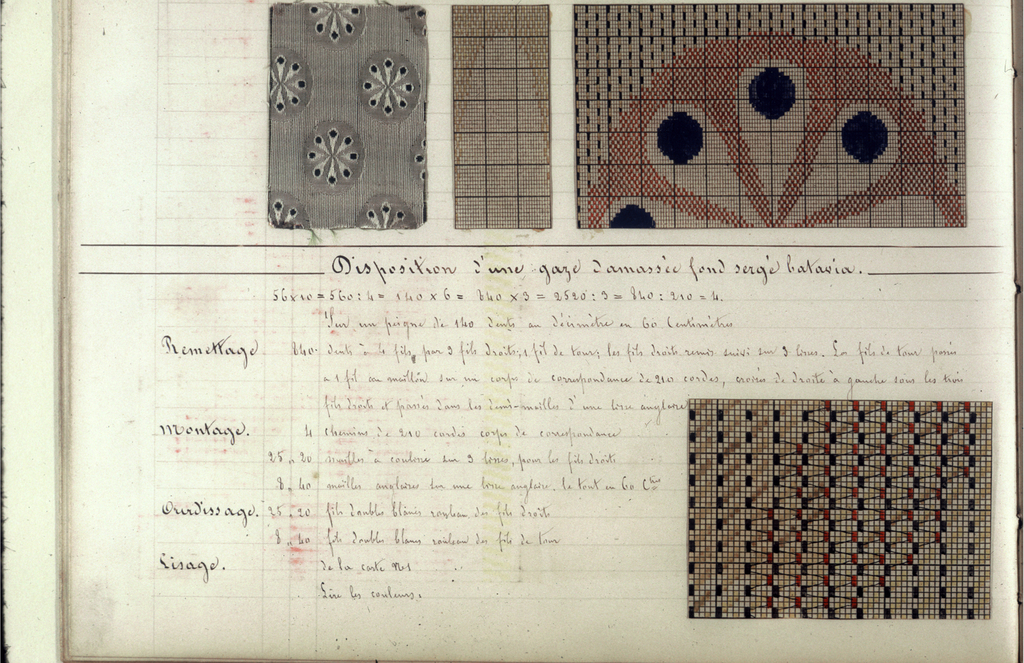 Disposition d'une gaze damassée fond sergé batavia.
56x10 = 560 : 4 = 140 x 6 = 840 x 3 = 2520 : 3 = 840 : 210 = 4.
Sur un peigne de 140 dents au décimètre en 60 Centimètres
Remettage 840. dents à 4 fils, par 3 fils droits, 1 fil de tour; les fils droits remis suivi sur 3 lices. Les fils de tour passés
à 1 fil au maillon sur un corps de correspondance de 210 cordes, croisés de droite à gauche sous les trois
fils droits et passés dans les demi-mailles d'une lisse anglaise
Montage. 4 chemins de 210 cordes corps de correspondance
25,,20 mailles à coulisse sur 3 lisses, pour les fils droits
8,,40 mailles anglaises sur une lisse anglaise. le tout en 60 Ctres
Ourdissage. 25,,20 fils doubles blancs rouleau des fils droits
8,,40 fils doubles blancs rouleau des fils de tour
Lisage. de la carte No 1
Lire les couleurs.